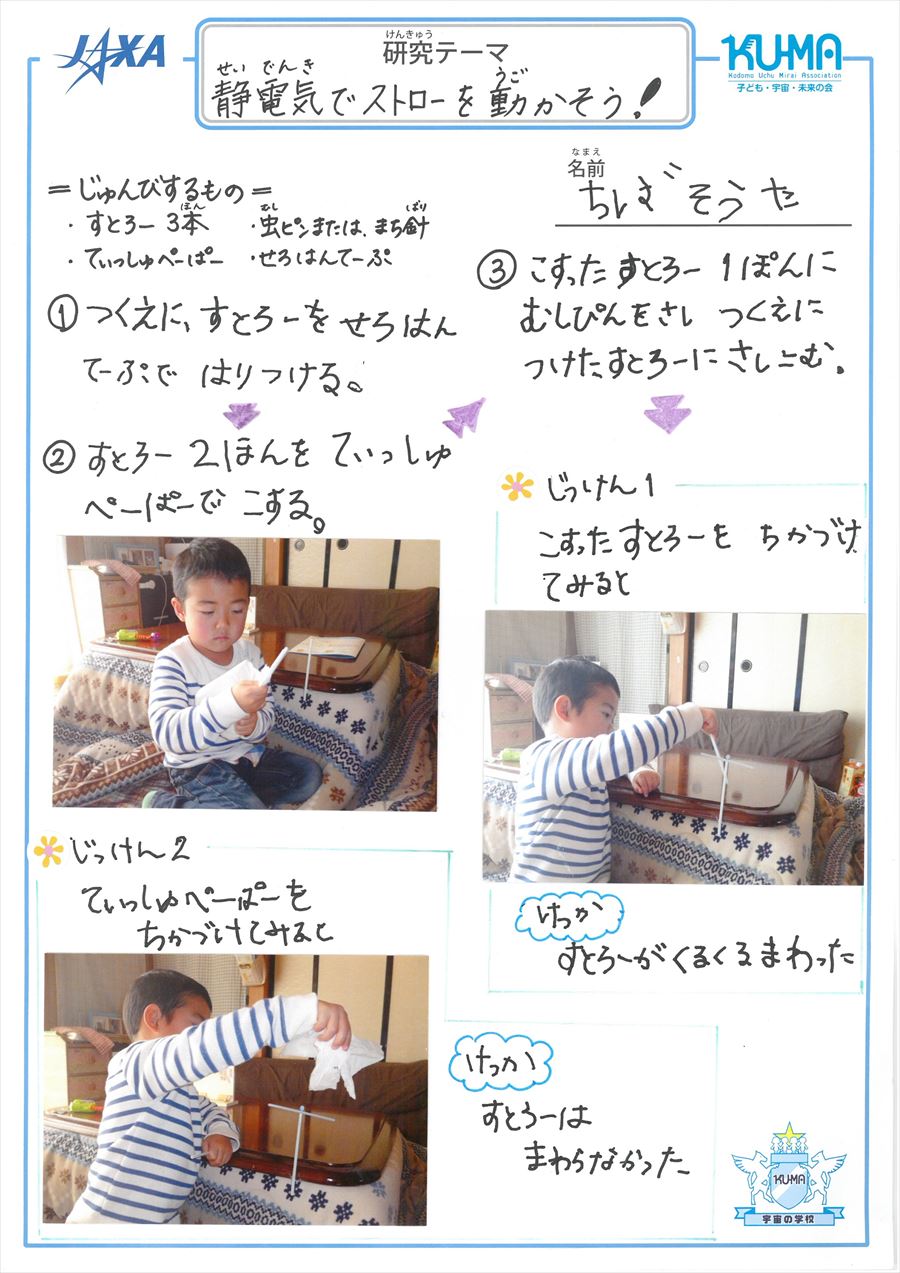 JAXA
けんきゅう
研究テーマ
せい でんき うご
静電気でストローを動かそう!
KU-MA
Kodomo Uchu Mirai Association
子ども・宇宙・未来の会
なまえ
名前
ちしざ そうた
=じゅんびするもの=
・すとろー 3本
ほん
・虫ピンまたは、まち針
むし ばり
・てぃっしゅぺーぱー
・せろはんてーぷ
① つくえに、すとろーを せろはん
てーぷで はりつける。
② すとろー 2ほんを てぃっしゅ
ぺーぱーで こする。
③ こすった すとろー 1ぽんに
むしぴんをさし つくえに
つけたすとろーに さしこむ。
じっけん1
こすったすとろーを ちかづけ
てみると
けっか
すとろーがくるくるまわった
じっけん2
てぃっしゅぺーぱーを
ちかづけてみると
けっか
すとろーは
まわらなかった
KU-MA
宇宙の学校